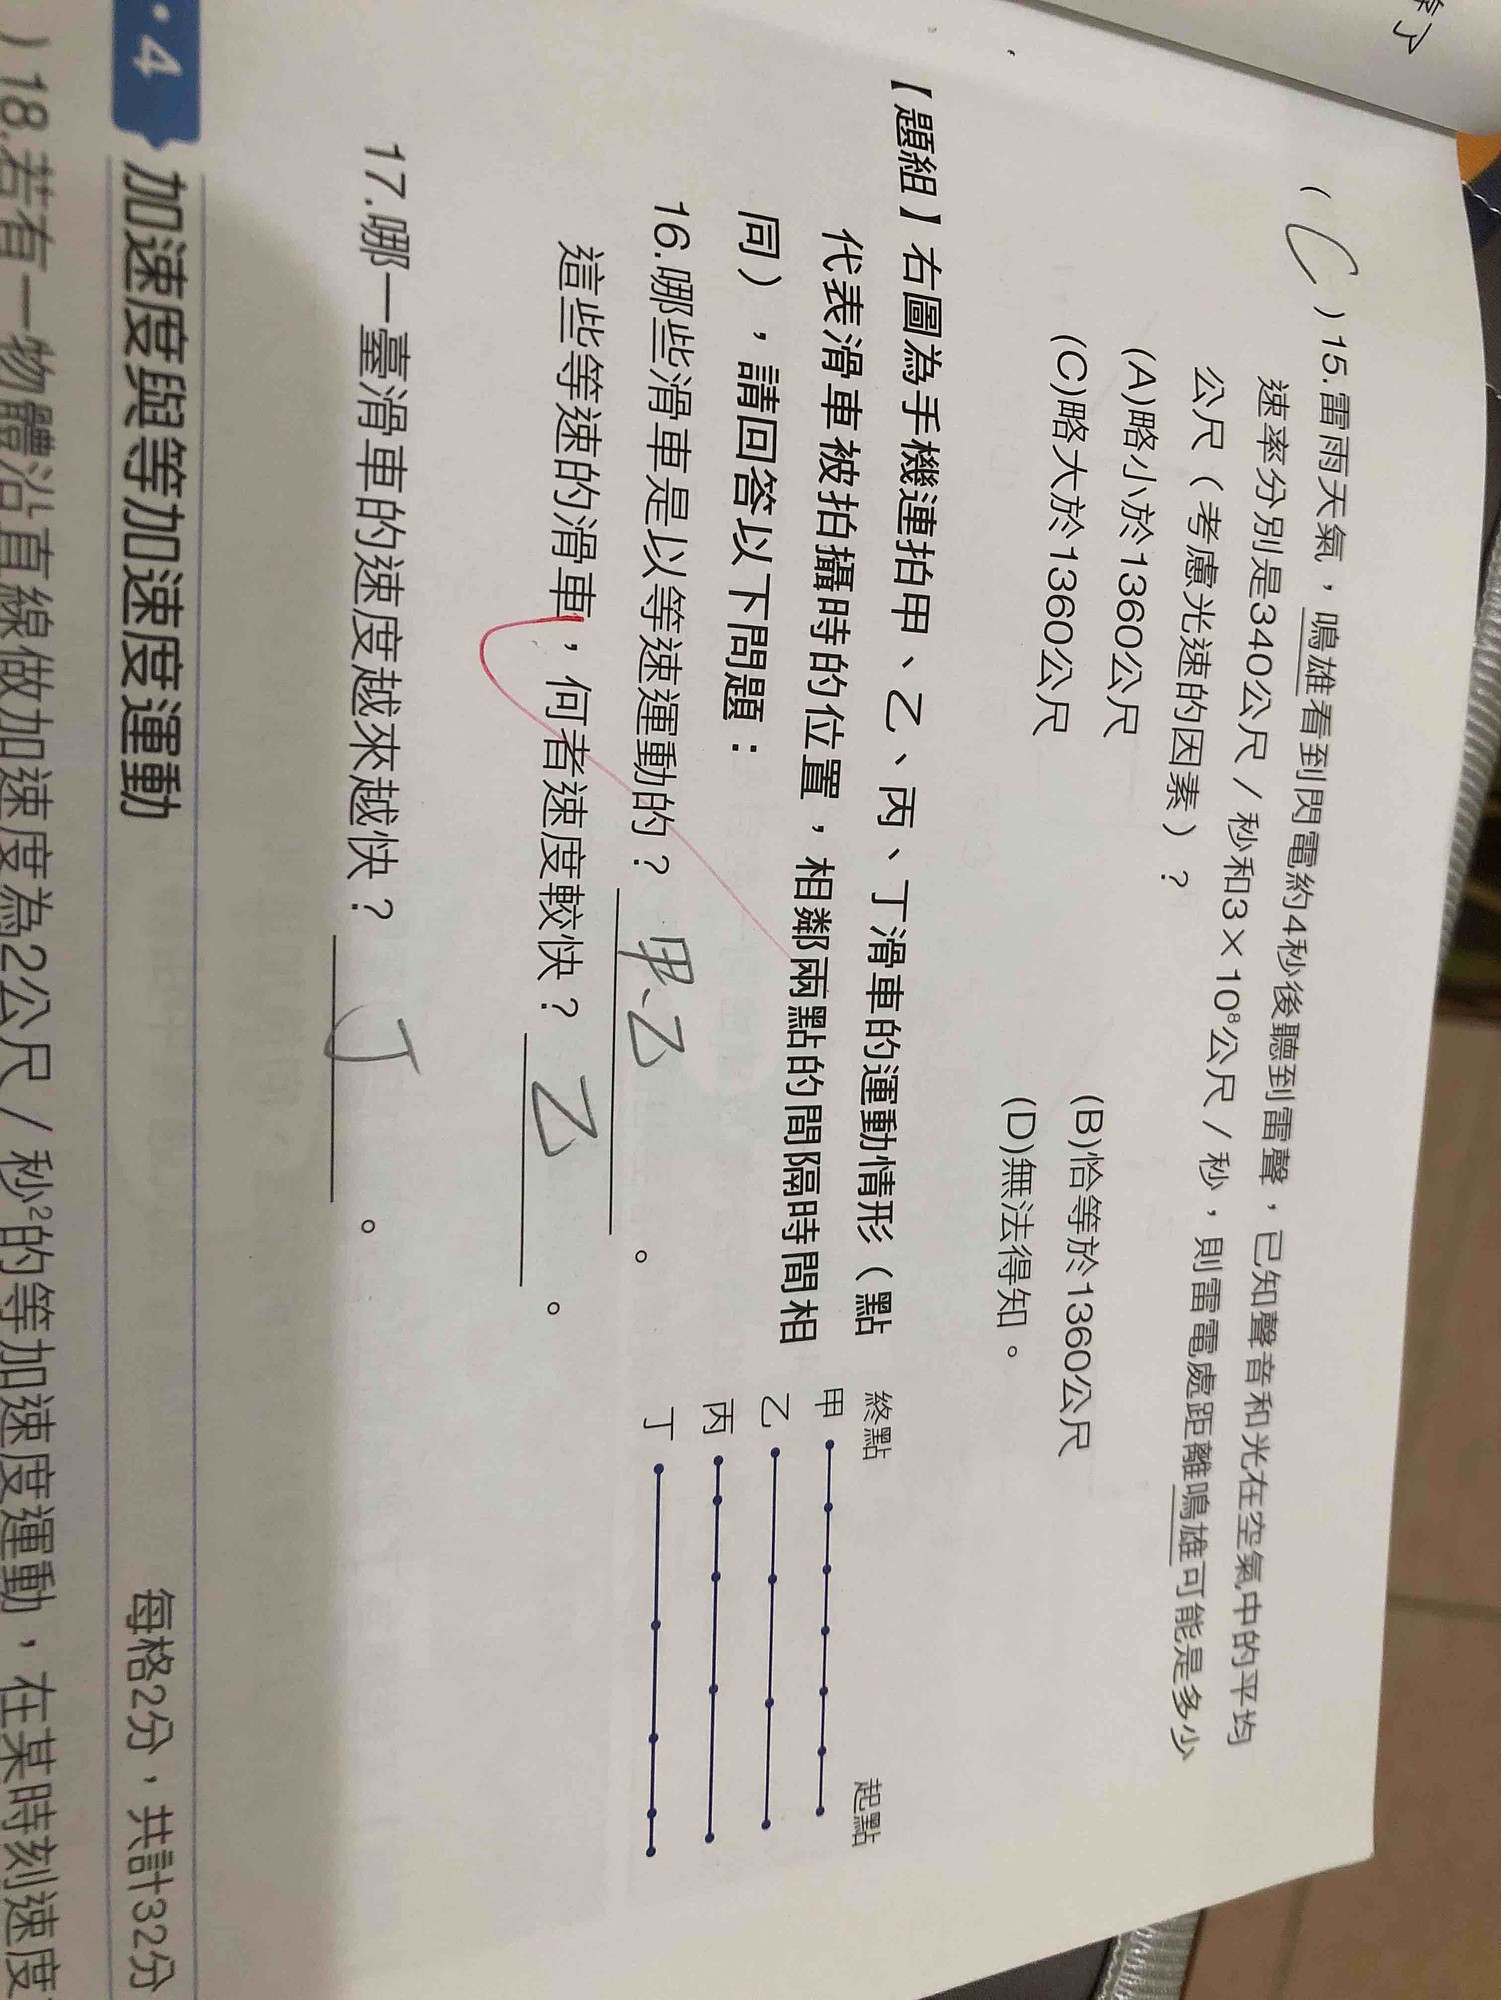 (C)15.雷雨天氣，鳴雄看到閃電約4秒後聽到雷聲，已知聲音和光在空氣中的平均
速率分別是340公尺／秒和3×10⁸公尺／秒，則雷電處距離鳴雄可能是多少
公尺（考慮光速的因素）？
(A)略小於1360公尺 (B)恰等於1360公尺
(C)略大於1360公尺 (D)無法得知。
【題組】右圖為手機連拍甲、乙、丙、丁滑車的運動情形（點
代表滑車被拍攝時的位置，相鄰兩點的間隔時間相
同），請回答以下問題：
終點 起點
甲
乙
丙
丁
16.哪些滑車是以等速運動的？甲、乙。
這些等速的滑車，何者速度較快？乙。
17.哪一臺滑車的速度越來越快？丁。
·4 加速度與等加速度運動 每格2分，共計32分
)18.若有一物體沿直線做加速度為2公尺／秒²的等加速度運動，在某時刻速度